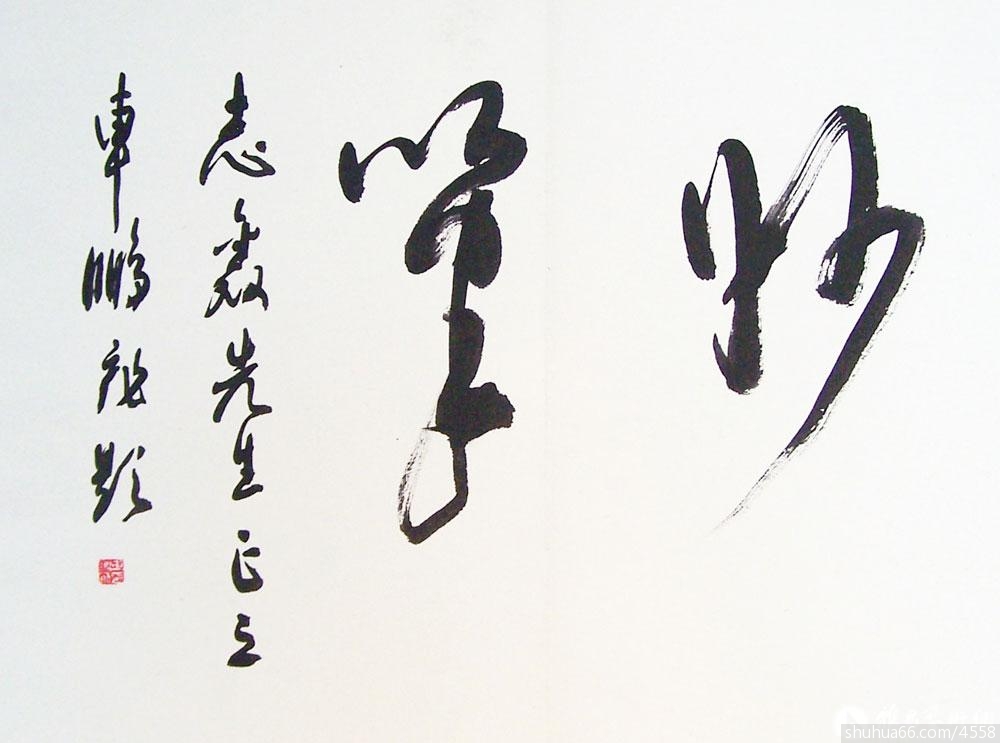 妙筆
志鑫先生正之
車鵬飛題
shuhua66.com/4558